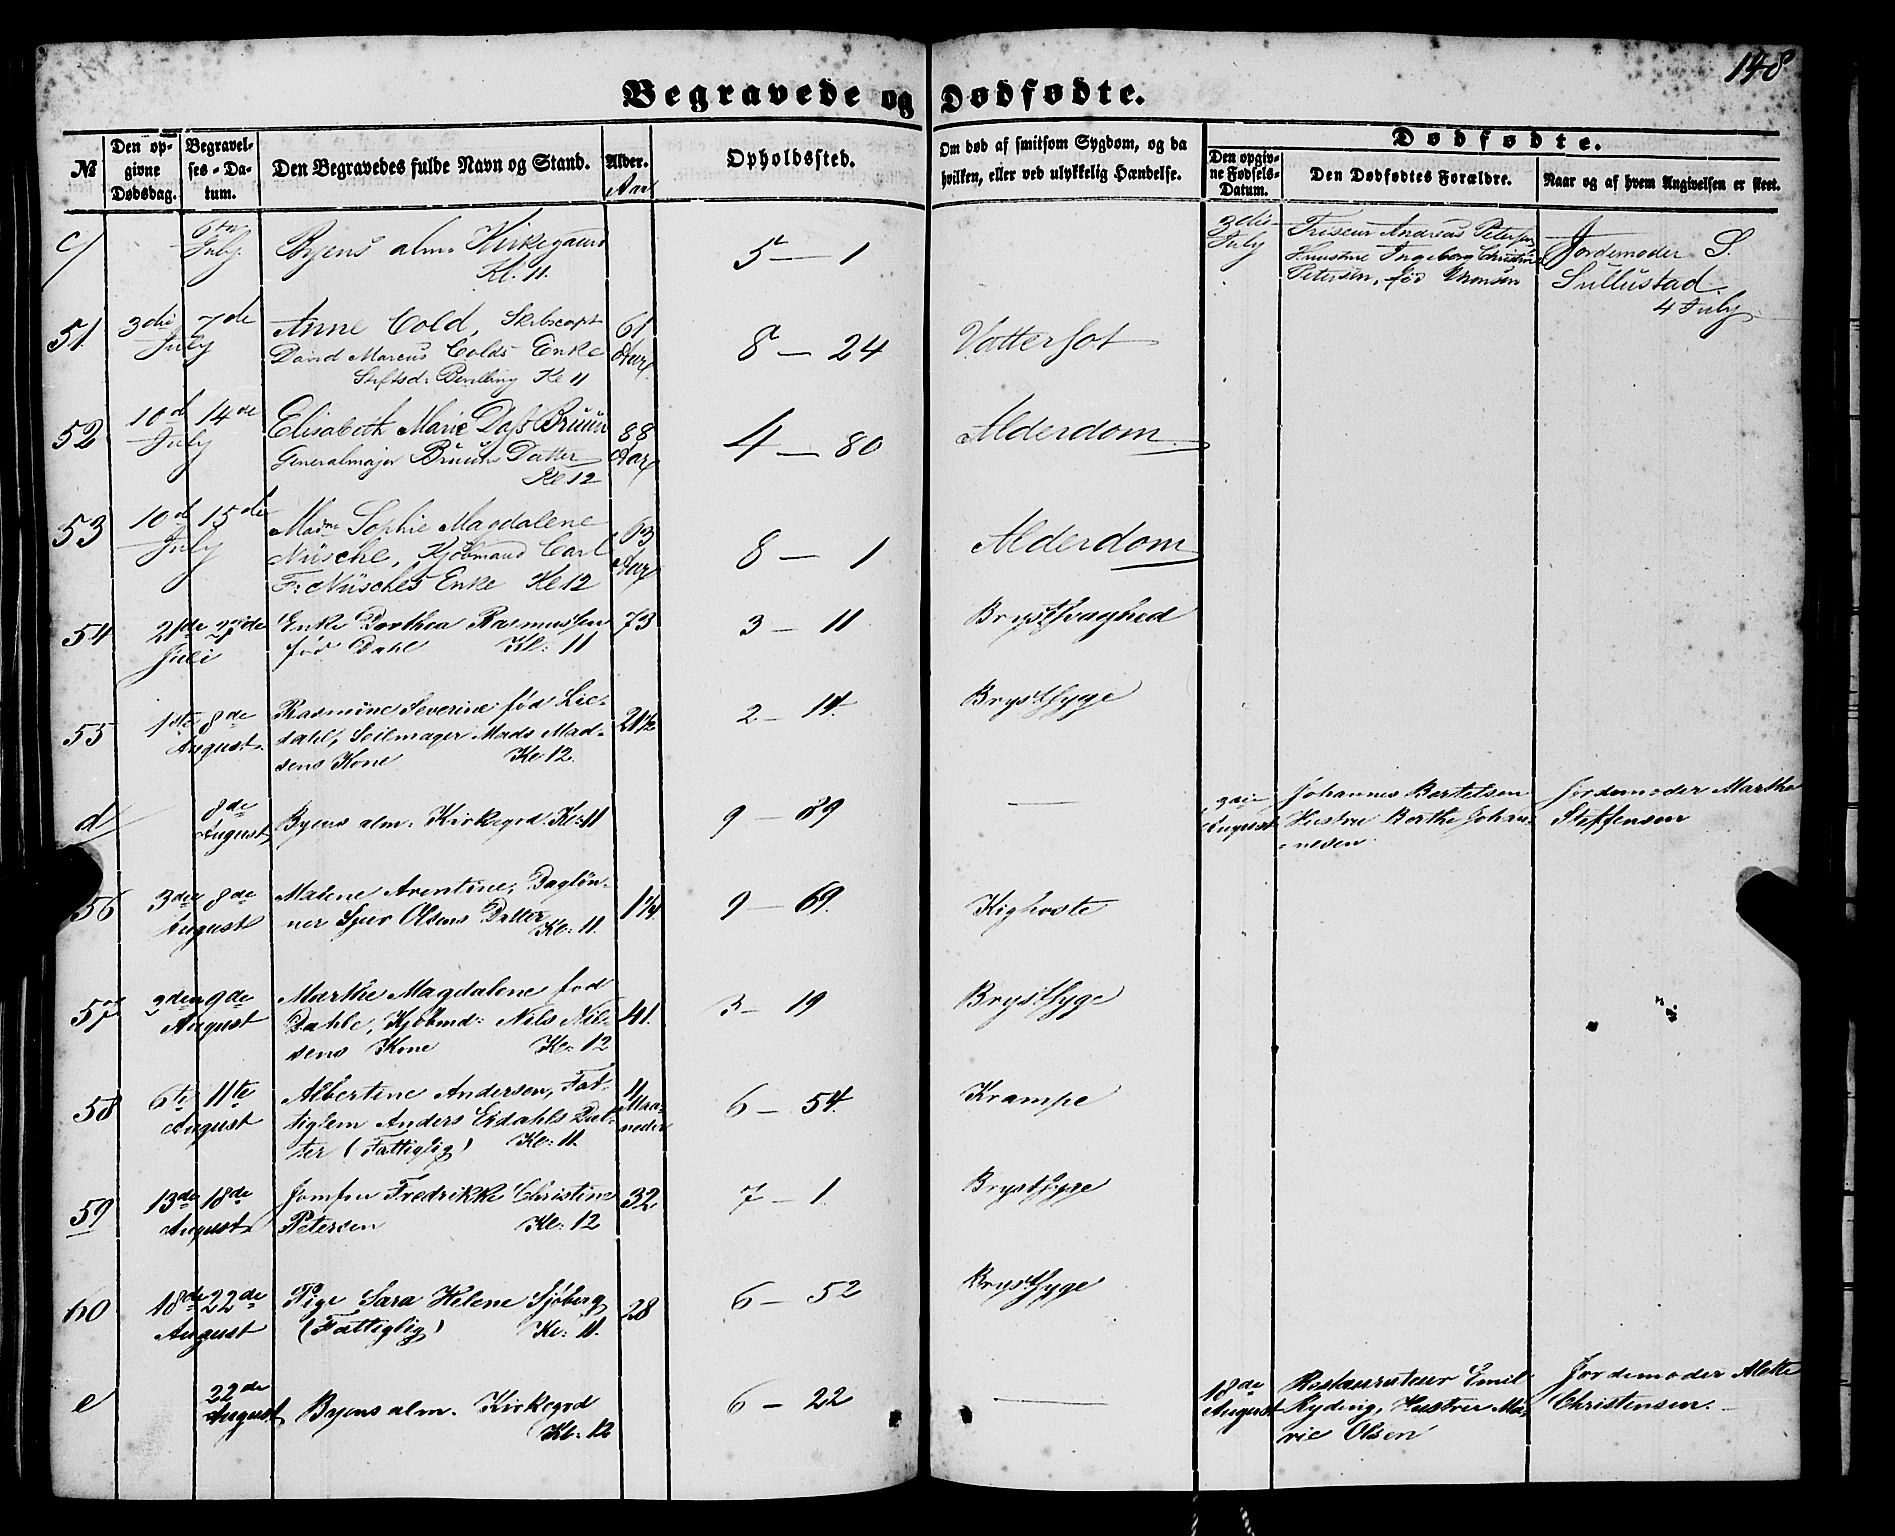 148
Begravede og Dødfødte.
№
Den opgivne Dødsdag.
Begravelses-Datum.
Den Begravedes fulde Navn og Stand.
Alder.
Opholdssted.
Om død af smitsom Sygdom, og da hvilken, eller ved ulykkelig Hændelse.
Dødfødte.
Den opgivne Fødsels-Datum.
Den Dødfødtes Forældre.
Naar og af hvem Angivelsen er skeet.
c/ July Byens alm. Kirkegaard
Kl. 11.
5 — 1
3die July
Friseur Andreas Petersen
Hustrue Ingeborg Christine
Petersen, fød
Jordemoder S.
Sullustad
4 July
51. 3die July 7de
Anne Cold, Skibscapt
David Marcus Colds Enke
Kl 11
61 Aar
8 — 24
Vattersot
52 10de July 14de
Elisabeth Marie Dass Bruun
Generalmajor Bruuns Datter
Kl 12
88 Aar
4 — 80
Alderdom
53 10de July 15de
Madm Sophie Magdalene
Nüsche, Kjøbmand Carl
F: Nüsches Enke Kl 12
63 Aar
8 — 1
Alderdom
54 21de Juli 27de
Enke Dorthea Rasmussen
fød Dahl Kl: 11
73
3 — 11
Brystsvaghed
55 1ste 8de August
Rasmine Severine fød Lie-
dahl, Seilmager Mads Mad-
sens Kone Kl 12.
21½
2 — 14.
Brystsyge
d/ 8de August
Byens alm. Kirkegrd. Kl: 11
9 — 89
—
3die August
Johannes Bertelsen
Hustru Berthe Johan-
nesen
Jordemoder Marthe
Steffensen
56 3die 8de August
Malene Arentine, Dagløn-
ner Sjur Olsens Datter
Kl: 11.
1¼
9 — 69.
Kighoste
57 3den 9de August
Marthe Magdalene fød
Dahle, Kjøbmd: Nils Niel-
sens Kone Kl: 12
41.
3 — 19
Brystsyge
58 6te 11te August
Albertine Andersen, Fat-
tiglem Anders Eidahls Dat-
ter (Fattiglig) Kl: 11.
11 Maaneder
6 — 54.
Krampe
59 13de 18de August
Jomfru Fredrikke Christine
Petersen Kl: 12
32
7 — 1.
Brystsyge
60 18de 22de August
Pige Sara Helene Sjøberg
(Fattiglig) Kl: 11.
28
6 — 52
Brystsyge
e 22de August
Byens alm. Kirkegrd
Kl: 12
6 — 22
—
18de August
Restaurateur Emil
Ryding, Hustrue Ma-
rie Olsen
Jordemoder Mette
Christensen.